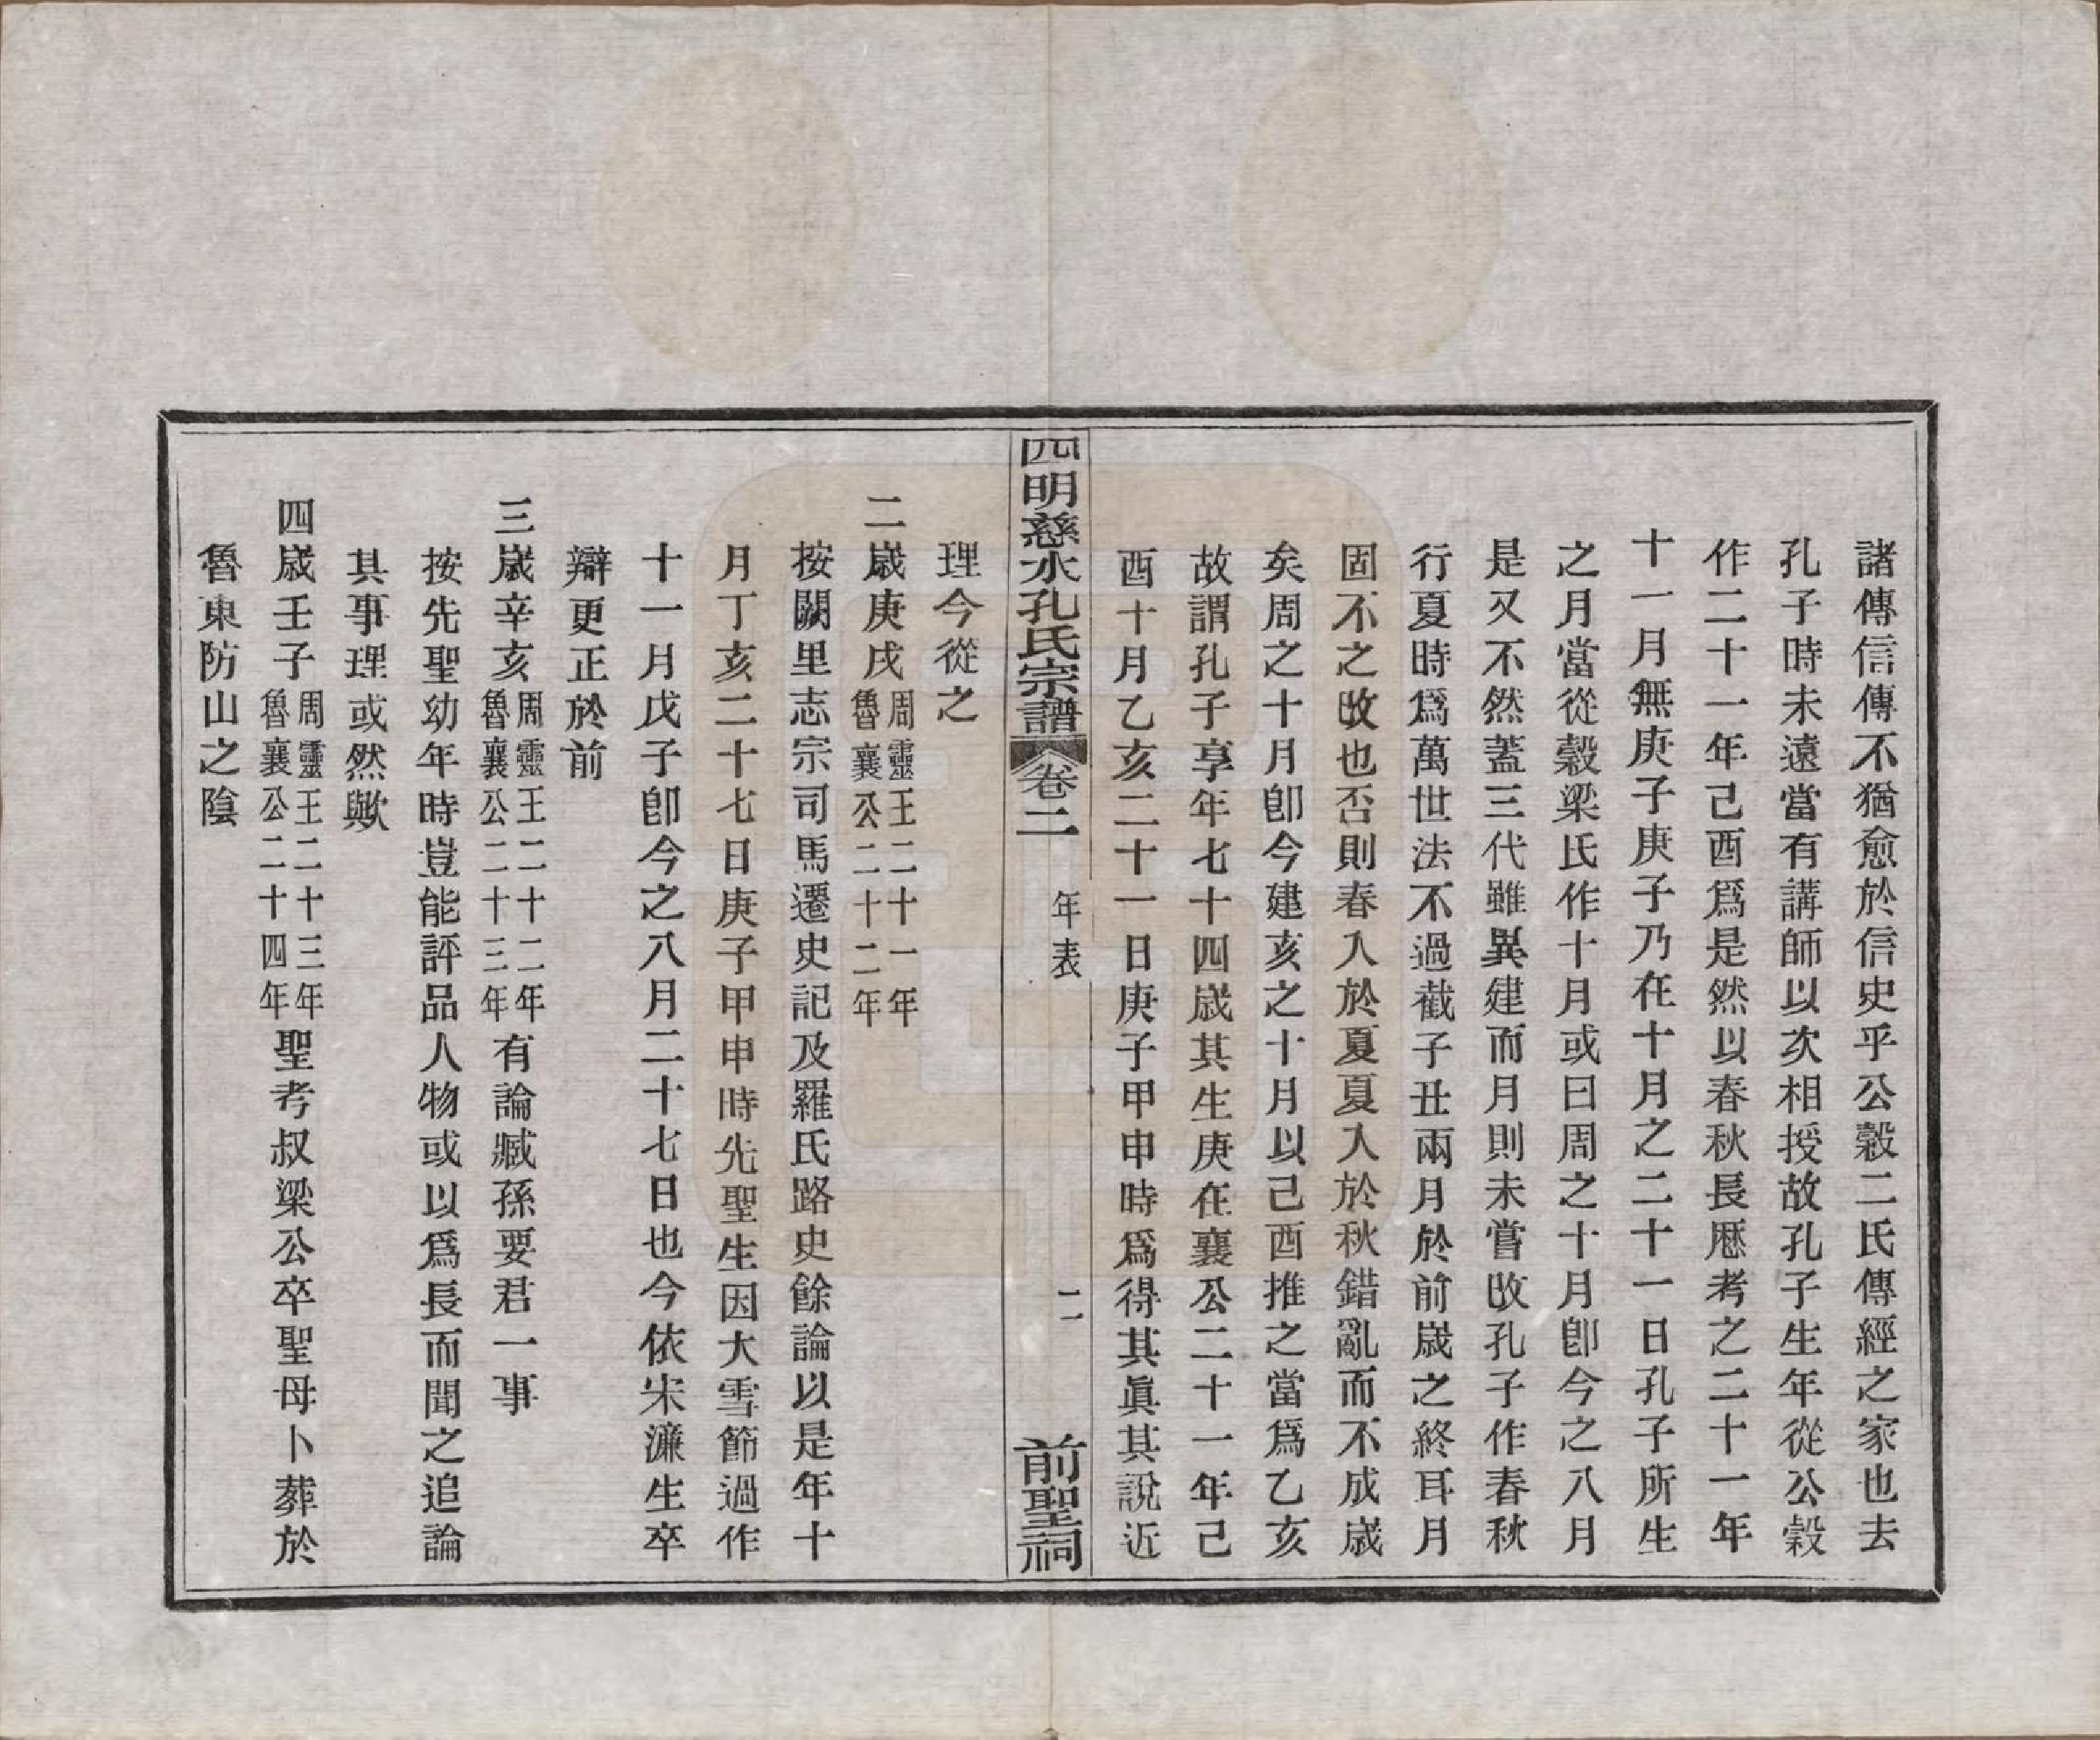 諸傳信傳不猶愈於信史乎公穀二氏傳經之家也去
孔子時未遠當有講師以次相授故孔子生年從公穀
作二十一年己酉爲是然以春秋長厯考之二十一年
十一月無庚子庚子乃在十月之二十一日孔子所生
之月當從穀梁氏作十月或曰周之十月卽今之八月
是又不然蓋三代雖異建而月則未嘗改孔子作春秋
行夏時爲萬世法不過截子丑兩月於前歲之終耳月
固不之改也否則春入於夏夏入於秋錯亂而不成歲
矣周之十月卽今建亥之十月以己酉推之當爲乙亥
故謂孔子享年七十四歲其生庚在襄公二十一年己
酉十月乙亥二十一日庚子甲申時爲得其眞其說近
四明慈水孔氏宗譜 卷二 年表 二 前聖祠
理今從之
二歲庚戌周靈王二十一年魯襄公二十二年
按闕里志宗司馬遷史記及羅氏路史餘論以是年十
月丁亥二十七日庚子甲申時先聖生因大雪節過作
十一月戊子卽今之八月二十七日也今依宋濂生卒
辯更正於前
三歲辛亥周靈王二十二年魯襄公二十三年有論臧孫要君一事
按先聖幼年時豈能評品人物或以爲長而聞之追論
其事理或然歟
四歲壬子周靈王二十三年魯襄公二十四年聖考叔梁公卒聖母卜葬於
魯東防山之陰